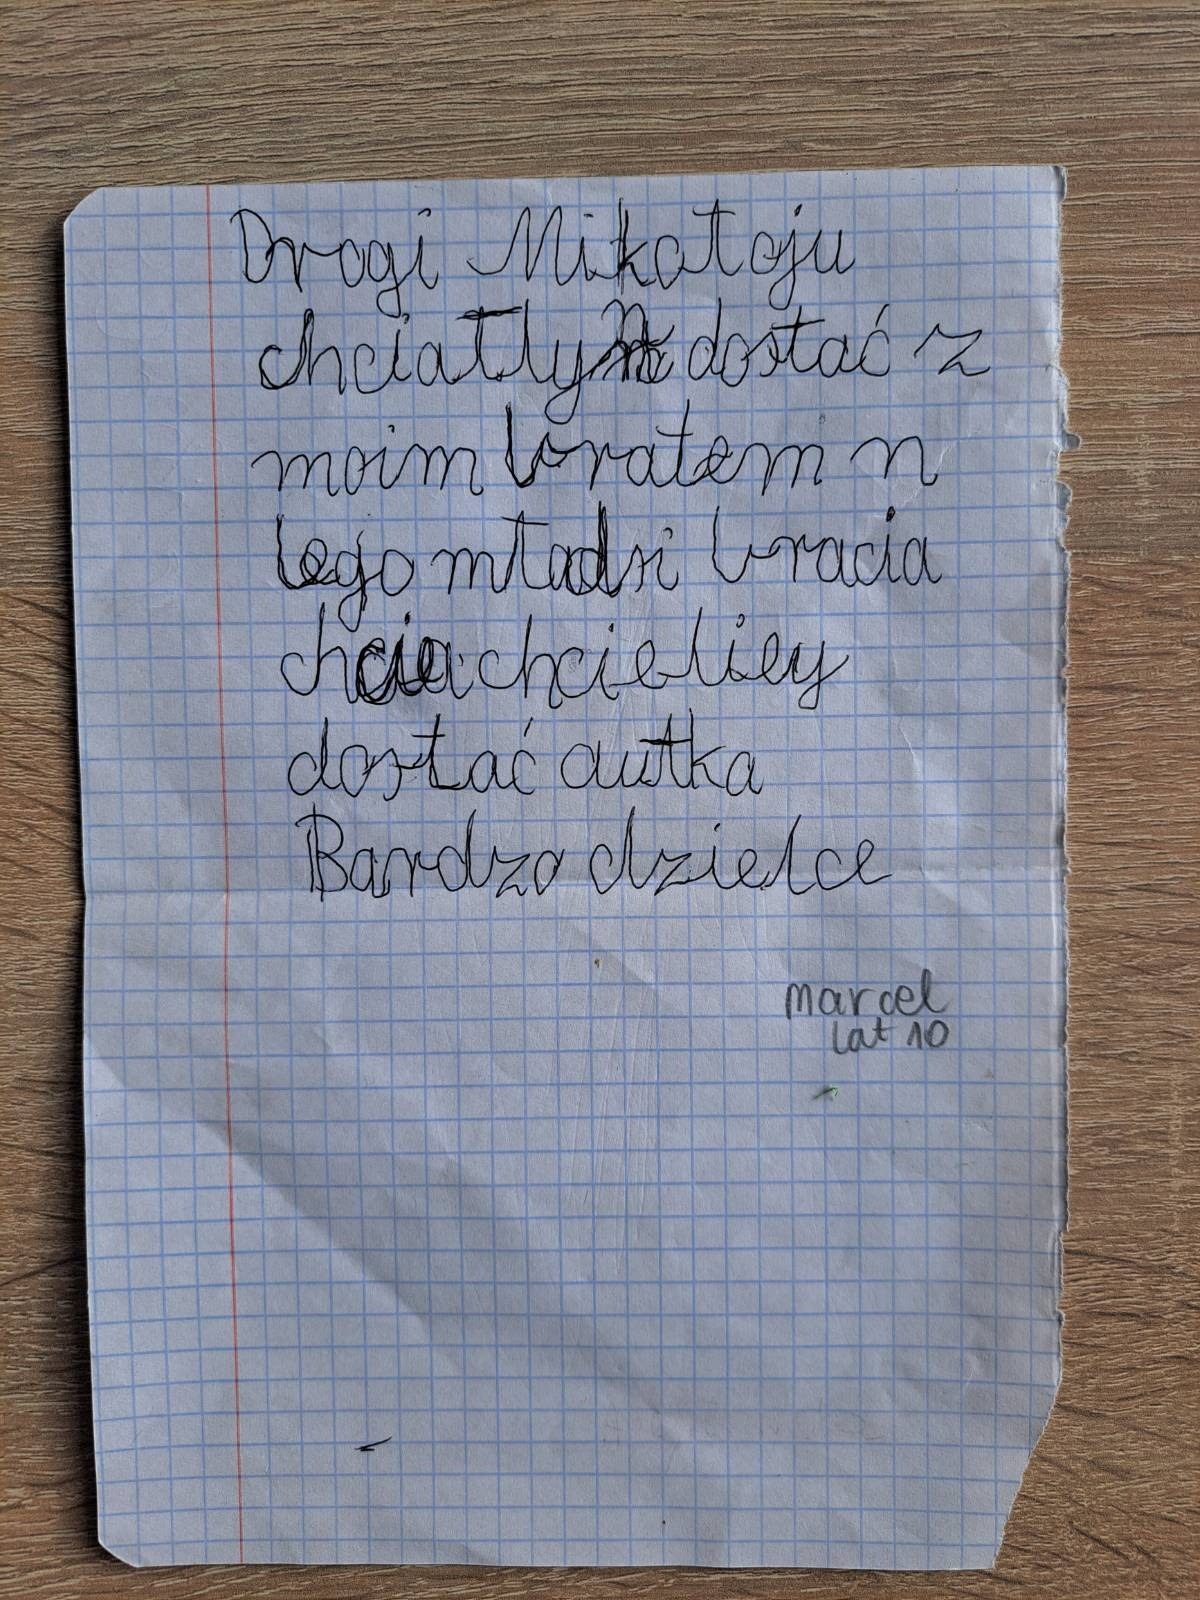 Drogi Mikołaju
chciałbym dostać z
moim bratem n
lego młodsi bracia
chcia chcieliey
dostać autka
Bardzo dzielce
marcel
lat 10